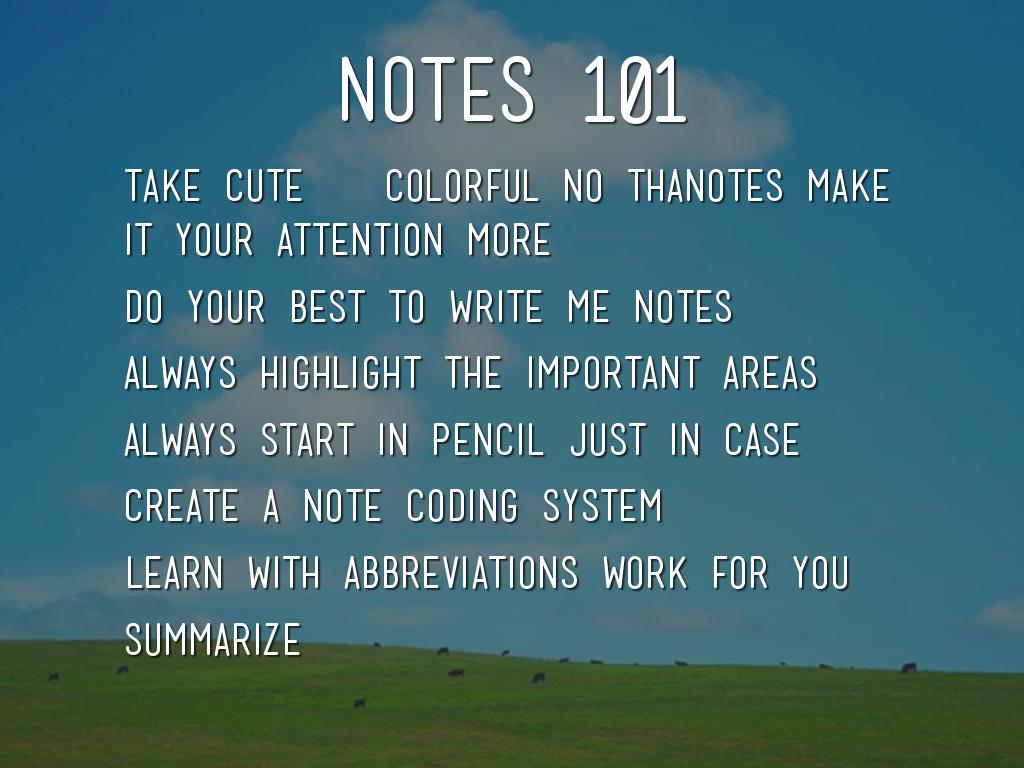 NOTES 101
TAKE CUTE COLORFUL NO THANOTES MAKE
IT YOUR ATTENTION MORE
DO YOUR BEST TO WRITE ME NOTES
ALWAYS HIGHLIGHT THE IMPORTANT AREAS
ALWAYS START IN PENCIL JUST IN CASE
CREATE A NOTE CODING SYSTEM
LEARN WITH ABBREVIATIONS WORK FOR YOU
SUMMARIZE